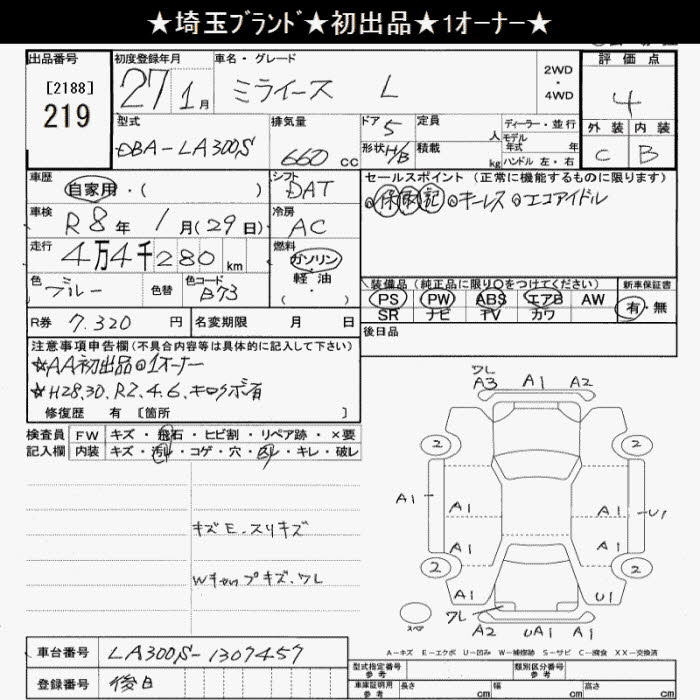 ★埼玉ﾌﾞﾗﾝﾄﾞ★初出品★1ｵｰﾅｰ★
出品番号
[2188]
219
初度登録年月
27 1月
車名・グレード
ミライース L
2WD
・
4WD
評価点
4
外装 内装
C B
型式
DBA-LA300S
排気量
660 cc
ドア 5
形状 H/B
定員 人
積載 kg
ディーラー・並行
モデル
年式 年
ハンドル 左・右
車歴
自家用・( )
シフト
DAT
車検
R8年 1月(29日)
冷房
AC
走行
4万4千280 km
燃料
ガソリン
軽油
( ・ )
色
ブルー
色替
色コード
B73
R券 7,320 円
名変期限 月 日
セールスポイント (正常に機能するものに限ります)
◎保取記◎キーレス◎エコアイドル
装備品 (純正品に限り○をつけてください)
PS PW ABS エアB AW
SR ナビ TV カワ
新車保証書
有・無
後日品
注意事項申告欄(不具合内容等は具体的に記入して下さい)
☆AA初出品◎1オーナー
☆H28.30.R2.4.6.キロクボ有
修復歴 有 [箇所 ]
検査員
記入欄
FW キズ・飛石・ヒビ割・リペア跡・×要
内装 キズ・汚れ・コゲ・穴・凹・キレ・破レ
キズE.スリキズ
Wキャップキズ.ワレ
ワレ
A3 A1 A2
2 2
A1 A1 A1 U1
A1 A1
2 2
A1 U1
ワレ
A2 UA1 A1
スペア
A-キズ E-エクボ U-凹み W-補修跡 S-サビ C-腐食 XX-交換済
車台番号 LA300S-1307457
登録番号 後日
型式指定番号
参考
類別区分番号
参考
車庫証明用
参考
長さ cm
幅 cm
高さ cm